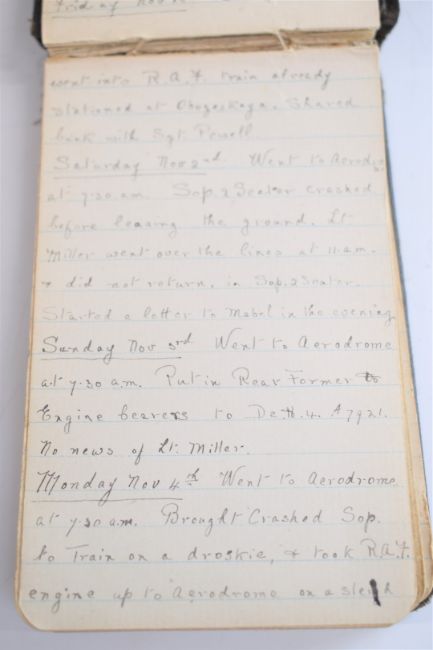 Friday Nov
went into R.A.F. train already
stationed at Obozeskaya. Shared
bunk with Sgt. Powell.
Saturday Nov 2nd. Went to Aerodro
at 7.30 a.m. Sop. 2 Seater crashed
before leaving the ground. Lt
Miller went over the lines at 11.a.m.
& did not return, in Sop. 2 Seater.
Started a letter to Mabel in the evening
Sunday Nov 3rd Went to Aerodrome
at 7.30 a.m. Put in Rear Former
Engine bearers to De.H.4. A7921.
No news of Lt. Miller.
Monday Nov 4th Went to Aerodrome
at 7.30 a.m. Brought Crashed Sop.
to Train on a droskie, & took R.A.F.
engine up to Aerodrome on a sleigh